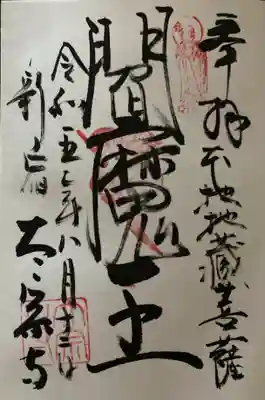 奉拝 本地地蔵菩薩
閻魔王
令和五年八月十二日
新宿 太宗寺